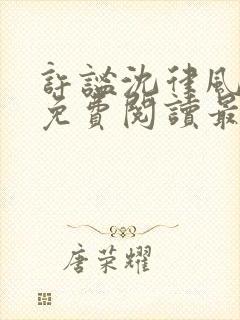 許謐沈律風
免費閱讀最
唐荣耀